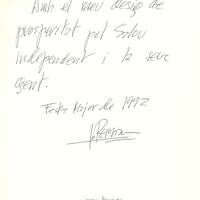 Amb el meu desig de
prosperitat pel Salou
independent i la seva
gent.
Festa Major de 1992